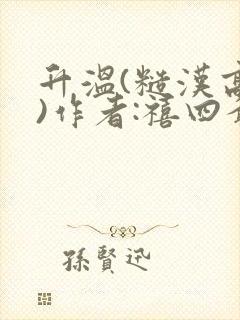 升溫(糙漢高
)作者:禧四
孫賢迅